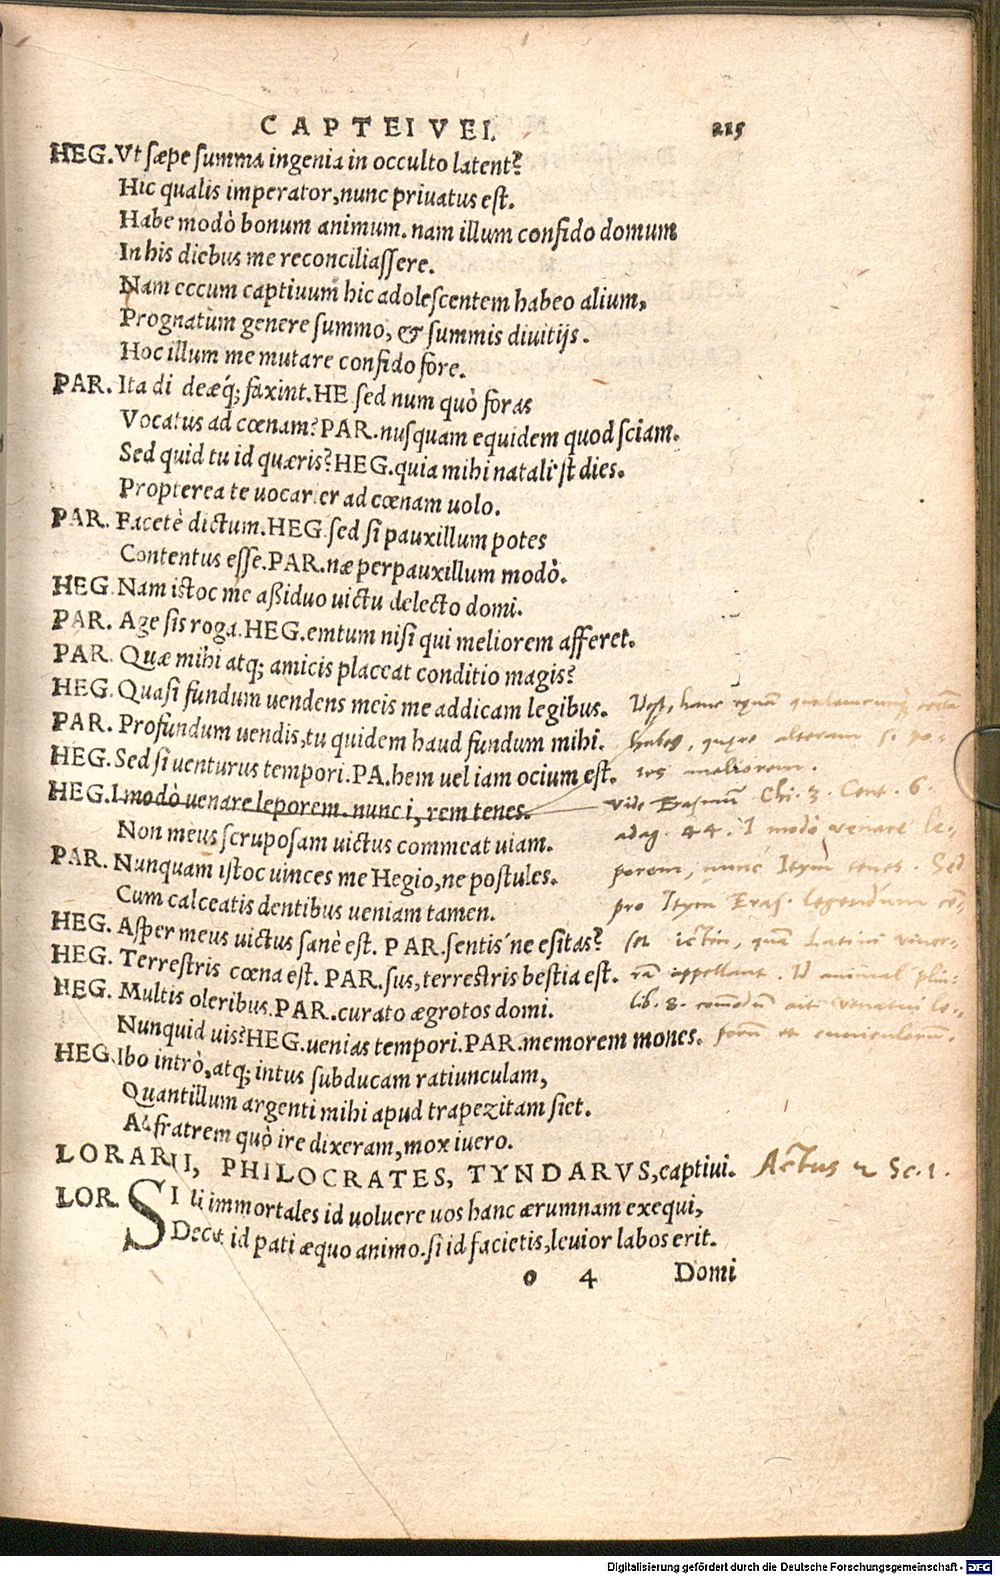 CAPTEIVEI. 215
HEG. Vt sæpe summa ingenia in occulto latent?
Hic qualis imperator, nunc priuatus est.
Habe modò bonum animum. nam illum confido domum
In his diebus me reconciliassere.
Nam eccum captiuum hic adolescentem habeo alium,
Prognatum genere summo, & summis diuitijs.
Hoc illum me mutare confido fore.
PAR. Ita di deæq́; faxint. HE. sed num quò foras
Vocatus ad cœnam? PAR. nusquam equidem quod sciam.
Sed quid tu id quæris? HEG. quia mihi natali'st dies.
Propterea te uocarier ad cœnam uolo.
PAR. Facetè dictum. HEG. sed si pauxillum potes
Contentus esse. PAR. næ perpauxillum modò.
HEG. Nam istoc me aßiduo uictu delecto domi.
PAR. Age sis roga. HEG. emtum nisi qui meliorem afferet.
PAR. Quæ mihi atq; amicis placeat conditio magis?
HEG. Quasi fundum uendens meis me addicam legibus.
PAR. Profundum uendis, tu quidem haud fundum mihi.
HEG. Sed si uenturus tempori. PA. hem uel iam ocium est.
HEG. I modò uenare leporem. nunc i, rem tenes.
Non meus scruposam uictus commeat uiam.
PAR. Nunquam istoc uinces me Hegio, ne postules.
Cum calceatis dentibus ueniam tamen.
HEG. Asper meus uictus sanè est. PAR. sentis'ne esitas?
HEG. Terrestris cœna est. PAR. sus, terrestris bestia est.
HEG. Multis oleribus. PAR. curato ægrotos domi.
Nunquid uis? HEG. uenias tempori. PAR. memorem mones.
HEG. Ibo intrò, atq; intus subducam ratiunculam,
Quantillum argenti mihi apud trapezitam siet.
Ad fratrem quò ire dixeram, mox iuero.
LORARII, PHILOCRATES, TYNDARVS, captiui.
LOR. SI di immortales id uoluere uos hanc ærumnam exequi,
Decet id pati æquo animo. si id facietis, leuior labos erit.
o 4 Domi
hanc
habes, quære alteram si po-
tes meliorem.
vide Erasmū Chi. 3. Cent. 6.
adag. 44. I modò venare le-
porem, nunc Itym tenes. Sed
pro Itym Eras. legendum cē-
set ictin, quā Latini viver-
rā appellant. Id animal Plin.
lib. 8. commodū ait venatui le-
porū et cuniculorū.
Actus 2 Sc. 1.
Digitalisierung gefördert durch die Deutsche Forschungsgemeinschaft - DFG